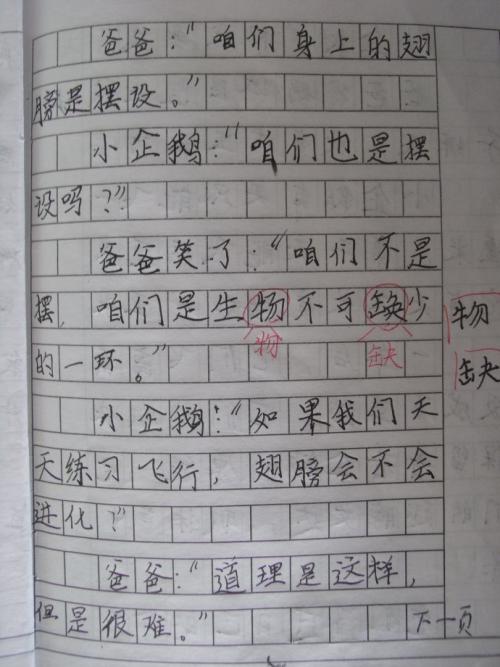 爸爸:"咱们身上的翅
膀是摆设。"
小企鹅:"咱们也是摆
设吗?"
爸爸笑了:"咱们不是
摆,咱们是生物不可缺少 物
物 缺 缺
的一环。"
小企鹅:"如果我们天
天练习飞行,翅膀会不会
进化?"
爸爸:"道理是这样,
但是很难。" 下一页